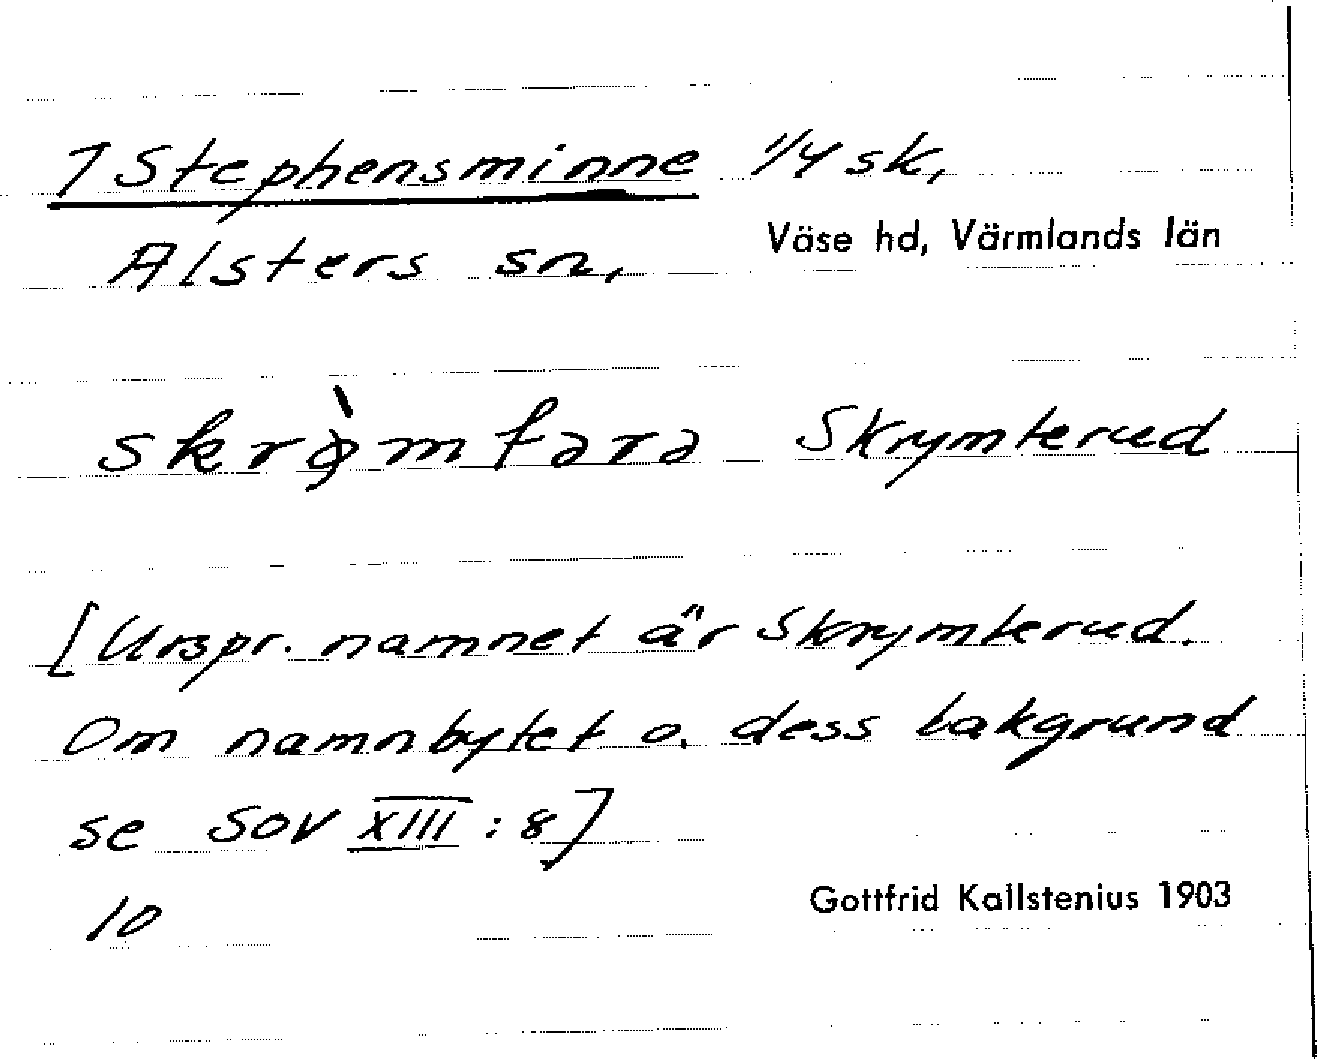 1 Stephensminne 1/4 sk,
Alsters sn, Väse hd, Värmlands län
skrø̀mtərə Skrymterud
[Urspr. namnet är Skrymterud.
Om namnbytet o. dess bakgrund
se SOV XIII : 8]
10
Gottfrid Kallstenius 1903